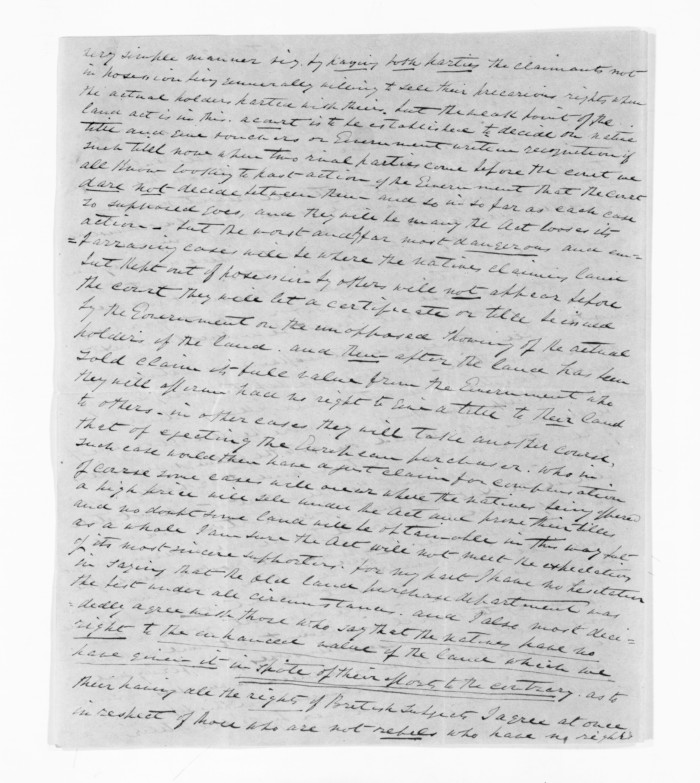 very simple manner viz. by paying both parties the claimants not
in possession being generally willing to sell their precarious rights when
the actual holders parted with theirs. but the weak point of the
land act is in this. a court is to be established to decide on native
title and give vouchers or Government written recognition of
such till now when two rival parties come before the court we
all know looking to past action of the Government that the court
dare not decide between them and so in so far as each case
so supposed goes, and they will be many the Act looses its
action - but the worst and far most dangerous and em=
=barrasing cases will be where the natives claiming land
but kept out of possession by others will not appear before
the court they will let a certificate or title be issued
by the Government on the unopposed showing of the actual
holders of the land. and then after the land has been
sold claim its full value from the Government who
they will affirm had no right to give a title to their land
to others - in other cases they will take another course,
that of ejecting the European purchaser. who in
such case would then have a just claim for compensation
of course some cases will occur where the natives being offered
a high price will sell under the Act and prove their titles
and no doubt some land will be obtainable in this way but
as a whole I am sure the Act will not meet the expectations
of its most sincere supporters. for my part I have no hesitation
in saying that the old land purchase department was
the best under all circumstance. and I also most deci=
=dedly agree with those who say that the natives have no
right to the enhanced value of the land which we
have given it in spite of their efforts to the contrary. as to
their having all the rights of British Subjects I agree at once
in respect of those who are not rebels who have no rights